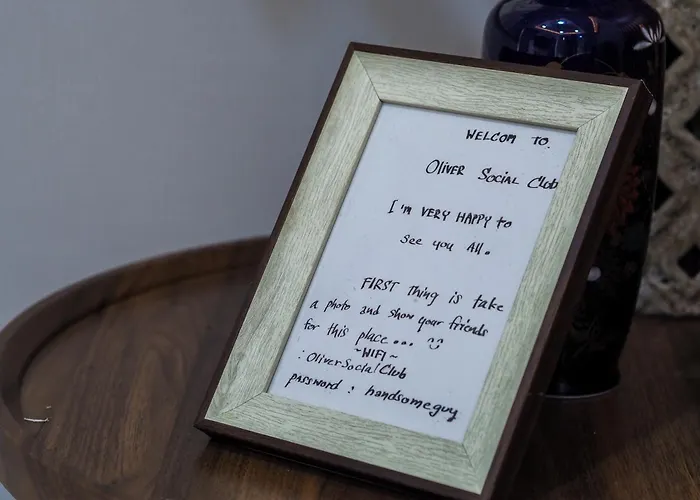 WELCOM TO.
OLIVER SOCIAL Club
I'm VERY HAPPY to
see you All.
FIRST Thing is take
a photo and show your friends
for this place... :)
~WIFI~
: OliverSocialClub
password : handsomeguy